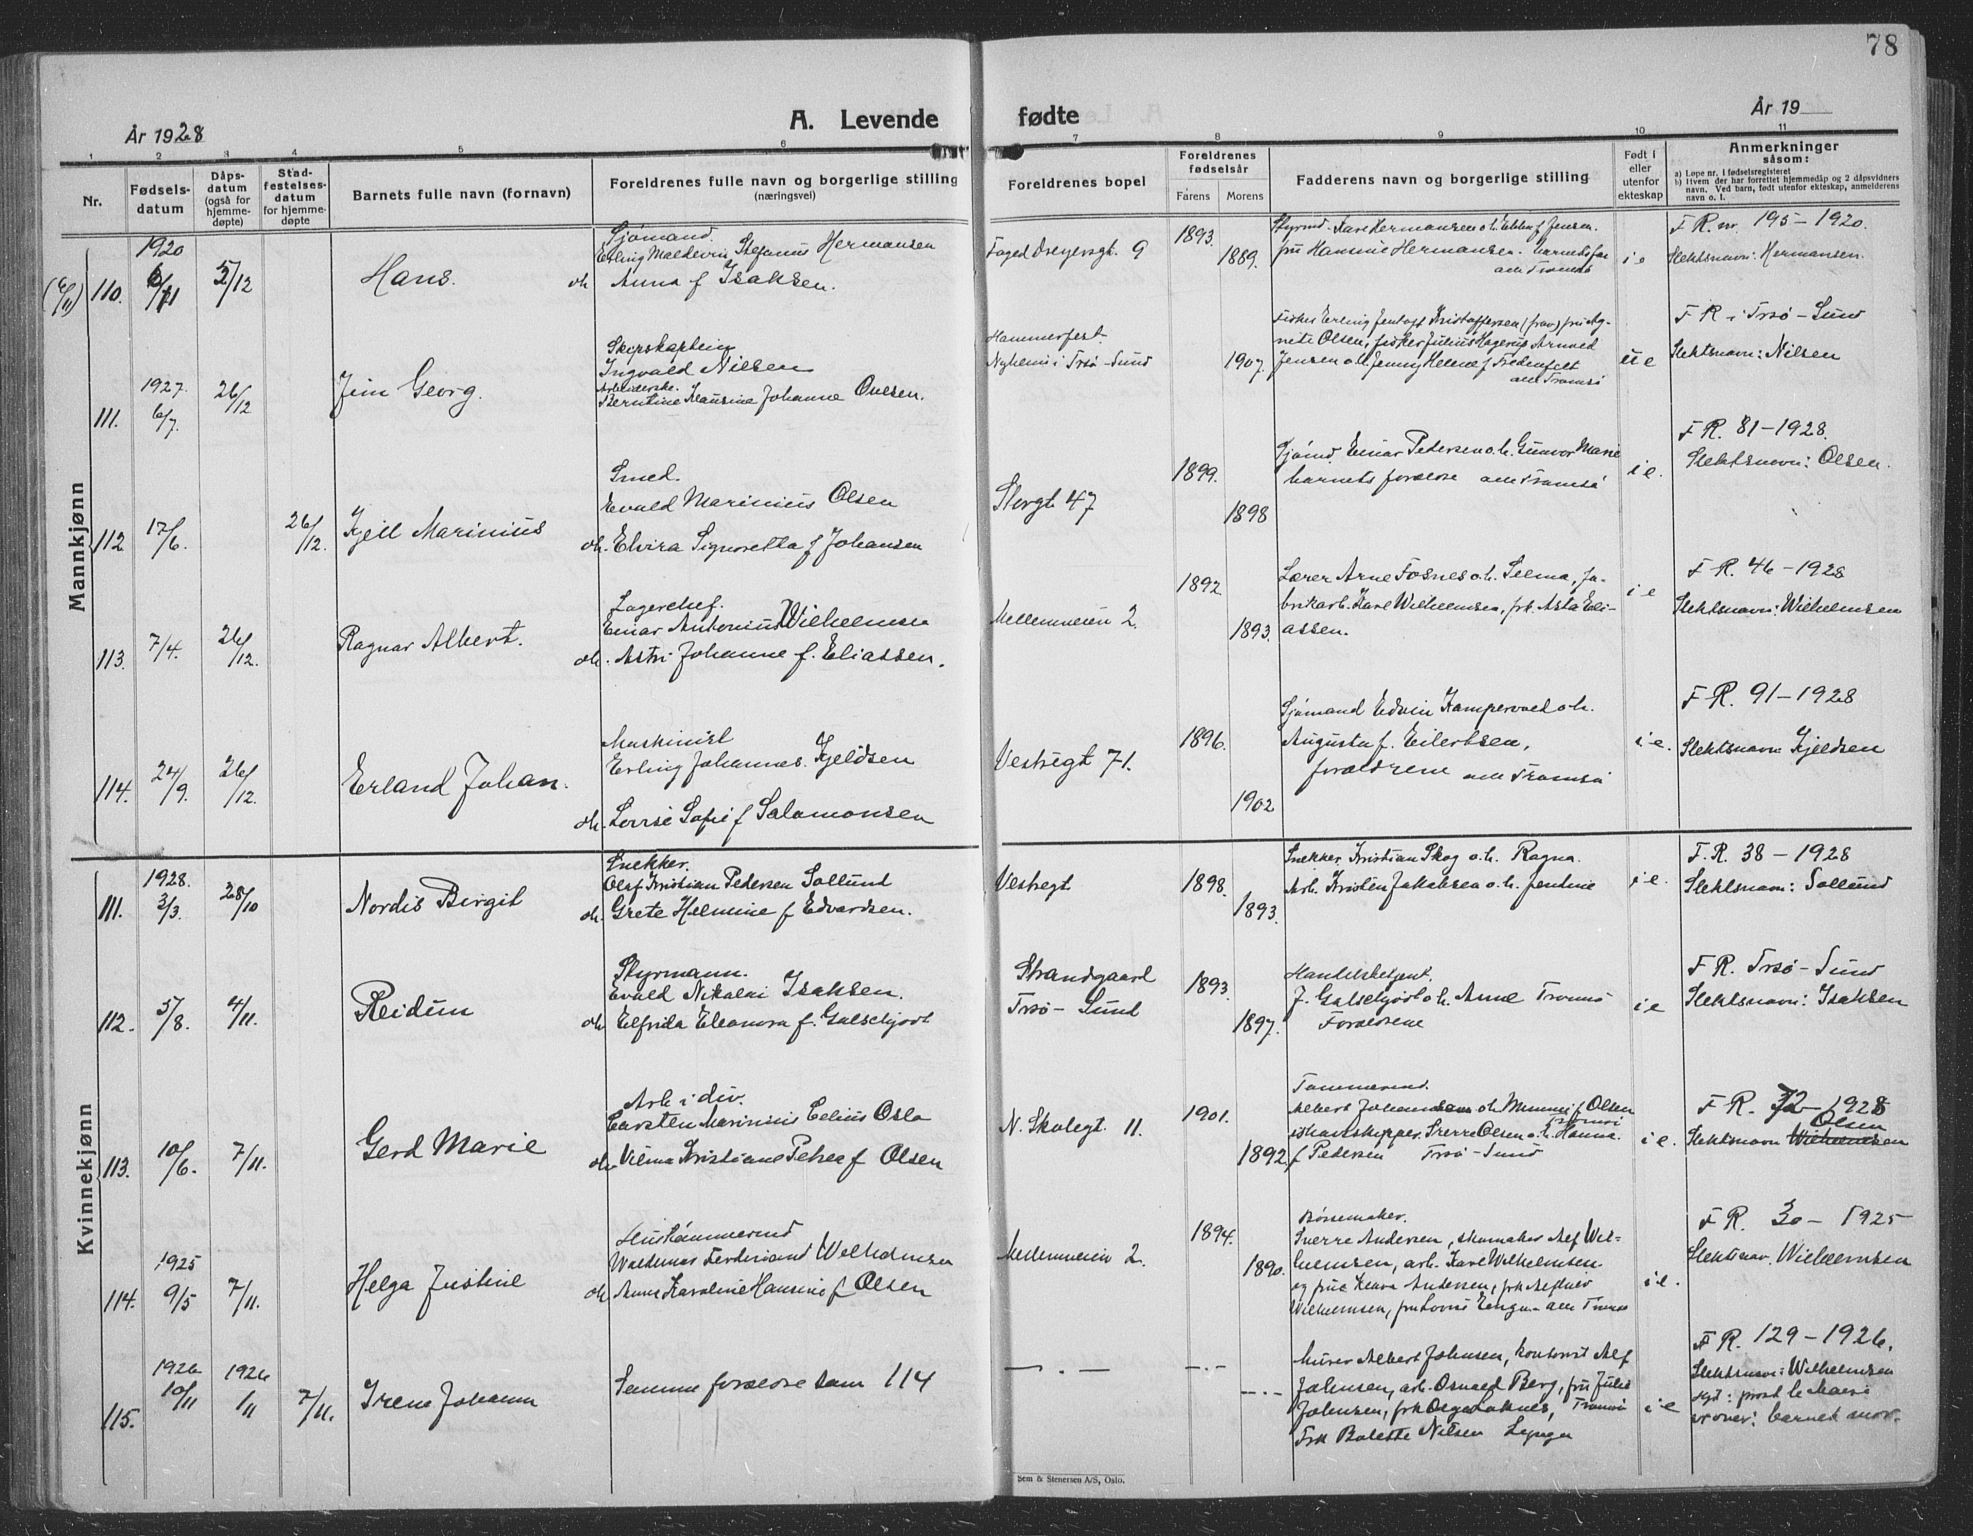 78
År 1928
A. Levende fødte
År 19
1 2 3 4 5 6 7 8 9 10 11
Nr.
Fødsels-
datum
Dåps-
datum
(også for
hjemme-
døpte)
Stad-
festelses-
datum
for hjemme-
døpte
Barnets fulle navn (fornavn)
Foreldrenes fulle navn og borgerlige stilling
(næringsvei)
Foreldrenes bopel
Foreldrenes
fødselsår
Farens Morens
Fadderens navn og borgerlige stilling
Født i
eller
utenfor
ekteskap
Anmerkninger
såsom:
a) Løpe nr. i fødselsregisteret
b) Hvem der har forrettet hjemmedåp og 2 dåpsvidners
navn. Ved barn, født utenfor ekteskap, anmelderens
navn o. l.
Mannkjønn
(6/11) 110.
1920
6/11
5/12
Hans.
Sjømand.
Erling Maldevin Stefanus Hermansen
oh. Anna f Isaksen.
Foged Dreyersgt. 9
1893.
1889.
Styrmd. Kare Hermansen o.h. Ebba f Jensen.
fru Hansine Hermansen. barnets far
alle Tromsø
i e
F R. nr. 195 – 1920.
Slektsnavn: Hermansen.
111.
1927.
6/7.
26/12
Jim Georg.
Skipskaptein
Ingvald Nilsen
Arbeiderske.
Berntine Klausine Johanne Ovesen.
Hammerfest.
Nyheim i Trsø-Sund
1907.
Fisker Erling Jentoft Kristoffersen (frav) fru Ag-
nete Olsen, fisker Julius Hagerup Arnvid
Jensen o.h. Jenny Helene f Fredenfelt
alle Tromsø
u e
F R i Trsø – Sund
Slektsnavn: Nilsen
112
17/6.
26/12.
Kjell Marinius
Smed.
Evald Marinius Olsen
oh. Elvira Signoretta f Johansen
Storgt. 47
1899.
1898
Sjømd. Einar Pedersen o.h. Gunvor Marie
barnets forældre alle Tromsø
i e.
F R. 81 – 1928.
Slektsnavn: Olsen.
113.
7/4.
26/12.
Ragnar Albert.
Lagerchef.
Einar Antonius Wilhelmsen
oh. Astri Johanne f. Eliassen.
Mellemveien 2.
1892.
1893.
Lærer Arne Fosnes o.h. Selma, fa-
brikarb. Kare Wilhelmsen, frk Asta Eli-
assen.
i e
F R. 46 – 1928
Slektsnavn: Wilhelmsen
114.
24/9.
26/12.
Erland Johan.
Maskinist
Erling Johannes Kjeldsen
oh. Lovise Sofie f Salamonsen
Vestregt 71.
1896.
1902
Sjømand Edvin Kampevold o.h.
Augusta f. Eilertsen,
forældrene alle Tromsø
i e.
F R. 91 – 1928
Slektsnavn Kjeldsen
Kvinnekjønn
111.
1928.
3/3.
28/10
Nordis Birgit
Snekker.
Olaf Kristian Pedersen Sollund
oh. Grete Helmine f Edvardsen.
Vestregt
1898.
1893.
Snekker Kristian Skog o.h. Ragna.
Arb. Kristen Jakobsen o.h. Jentine
i e.
F. R. 38 – 1928
Slektsnavn: Sollund
112.
5/8.
4/11.
Reidun
Styrmann.
Evald Nikolai Isaksen.
oh Elfrida Eleonora f. Galschjødt
Strandgaard
Trsø – Sund
1893.
1897.
Handelsbetjent.
J. Galschjødt o.h. Anne Tromsø
Forældrene
i e
F R. Trsø – Sund
Slektsnavn: Isaksen
113.
10/6.
7/11.
Gerd Marie
Arb i div.
Carsten Marinius Celius Oslo
oh. Vilma Kristiane Petrea f Olsen
N. Skolegt. 11.
1901.
1892
Tømmermd.
Albert Johannesen o.h. Mimmi f Olsen
Tromsø
ishavsskipper Sverre Olsen o.h. Hanna
f Pedersen Trsø – Sund
i e.
F R. 72 – 1928
Olsen
Slektsnavn Wilhelmsen
114.
1925
9/5
7/11.
Helga Justine
Hustømmermd
Waldemar Ferdinand Wilhelmsen
oh Anna Karoline Hansine f Olsen
Mellemveien 2.
1894.
1890.
Børsemaker.
Sverre Andersen, skomaker Alf Wil-
helmsen, arb. Kare Wilhelmsen
og frue Klara Andersen, frk Alfhild
Wilhelmsen, fru Lovise Enga – alle Tromsø
i e.
F R. 30 – 1925
Slektsnav. Wilhelmsen
115.
1926
10/11
1926
1/11
7/11.
Irene Johanna
Samme forældre som 114
— . —
— . —
— . —
Murer Albert Johnsen, kontorist Alf
Johnsen, arb. Osvald Berg, fru Julie
Johnsen, frk Olga Loknes, Tromsø
Frk Bolette Nilsen Lyngen
i e
F R. 129 – 1926.
Slektsnavn: Wilhelmsen
barnets mor.
Sem & Stenersen A/S, Oslo.